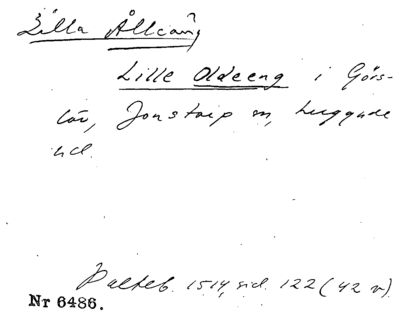 Lilla Ållcång
Lille Oldeeng i Görs-
löv, Jonstorp sn, Luggude
hd.
Palteb. 1514, sid. 122 (42 v).
Nr 6486.